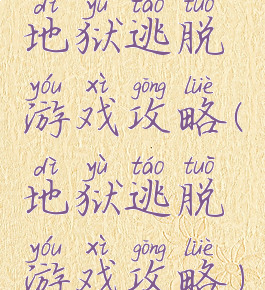 dì yù táo tuō
地狱逃脱
yóu xì gōng lüè
游戏攻略(
dì yù táo tuō
地狱逃脱
yóu xì gōng lüè
游戏攻略)